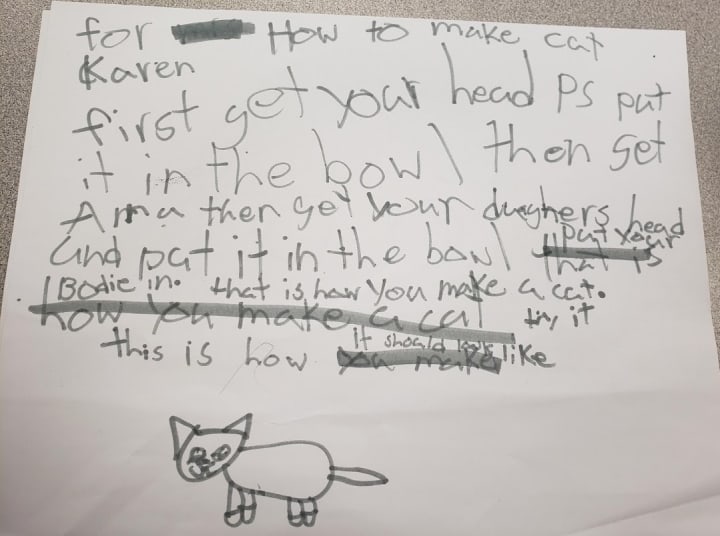 for How to make cat
Karen
first get your head PS put
it in the bowl then get
Arma then get your dughers head
and put it in the bowl put your
Bodie in. that is how You make a cat.
how You make a cat try it
this is how it should look like